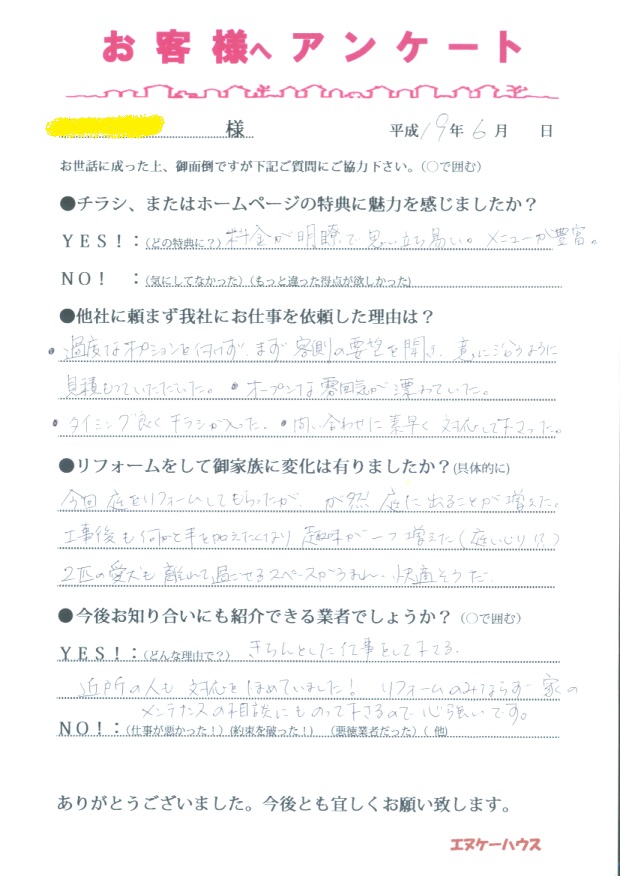 お客様へアンケート
様 平成19年6月 日
お世話に成った上、御面倒ですが下記ご質問にご協力下さい。(○で囲む)
●チラシ、またはホームページの特典に魅力を感じましたか？
ＹＥＳ！：(どの特典に？) 料金が明瞭で思い立ち易い。メニューが豊富。
ＮＯ！ ：(気にしてなかった)(もっと違った得点が欲しかった)
●他社に頼まず我社にお仕事を依頼した理由は？
・過度なオプションを付けず、まず客側の要望を聞き、意に沿うように
見積もっていただいた。・オープンな雰囲気が漂っていた。
・タイミング良くチラシが入った。・問い合わせに素早く対応して下さった。
●リフォームをして御家族に変化は有りましたか？(具体的に)
今回庭をリフォームしてもらったが、が然庭に出ることが増えた。
工事後も何かと手を加えたくなり趣味が一つ増えた(庭いじり!?)
2匹の愛犬も離れて過ごせるスペースがうまれ、快適そうだ
●今後お知り合いにも紹介できる業者でしょうか？(○で囲む)
ＹＥＳ！：(どんな理由で？) きちんとした仕事をして下さる。
近所の人も対応をほめていました！ リフォームのみならず家の
メンテナンスの相談にものって下さるので心強いです。
ＮＯ！：(仕事が悪かった！)(約束を破った！) (悪徳業者だった)( 他)
ありがとうございました。今後とも宜しくお願い致します。
エヌケーハウス